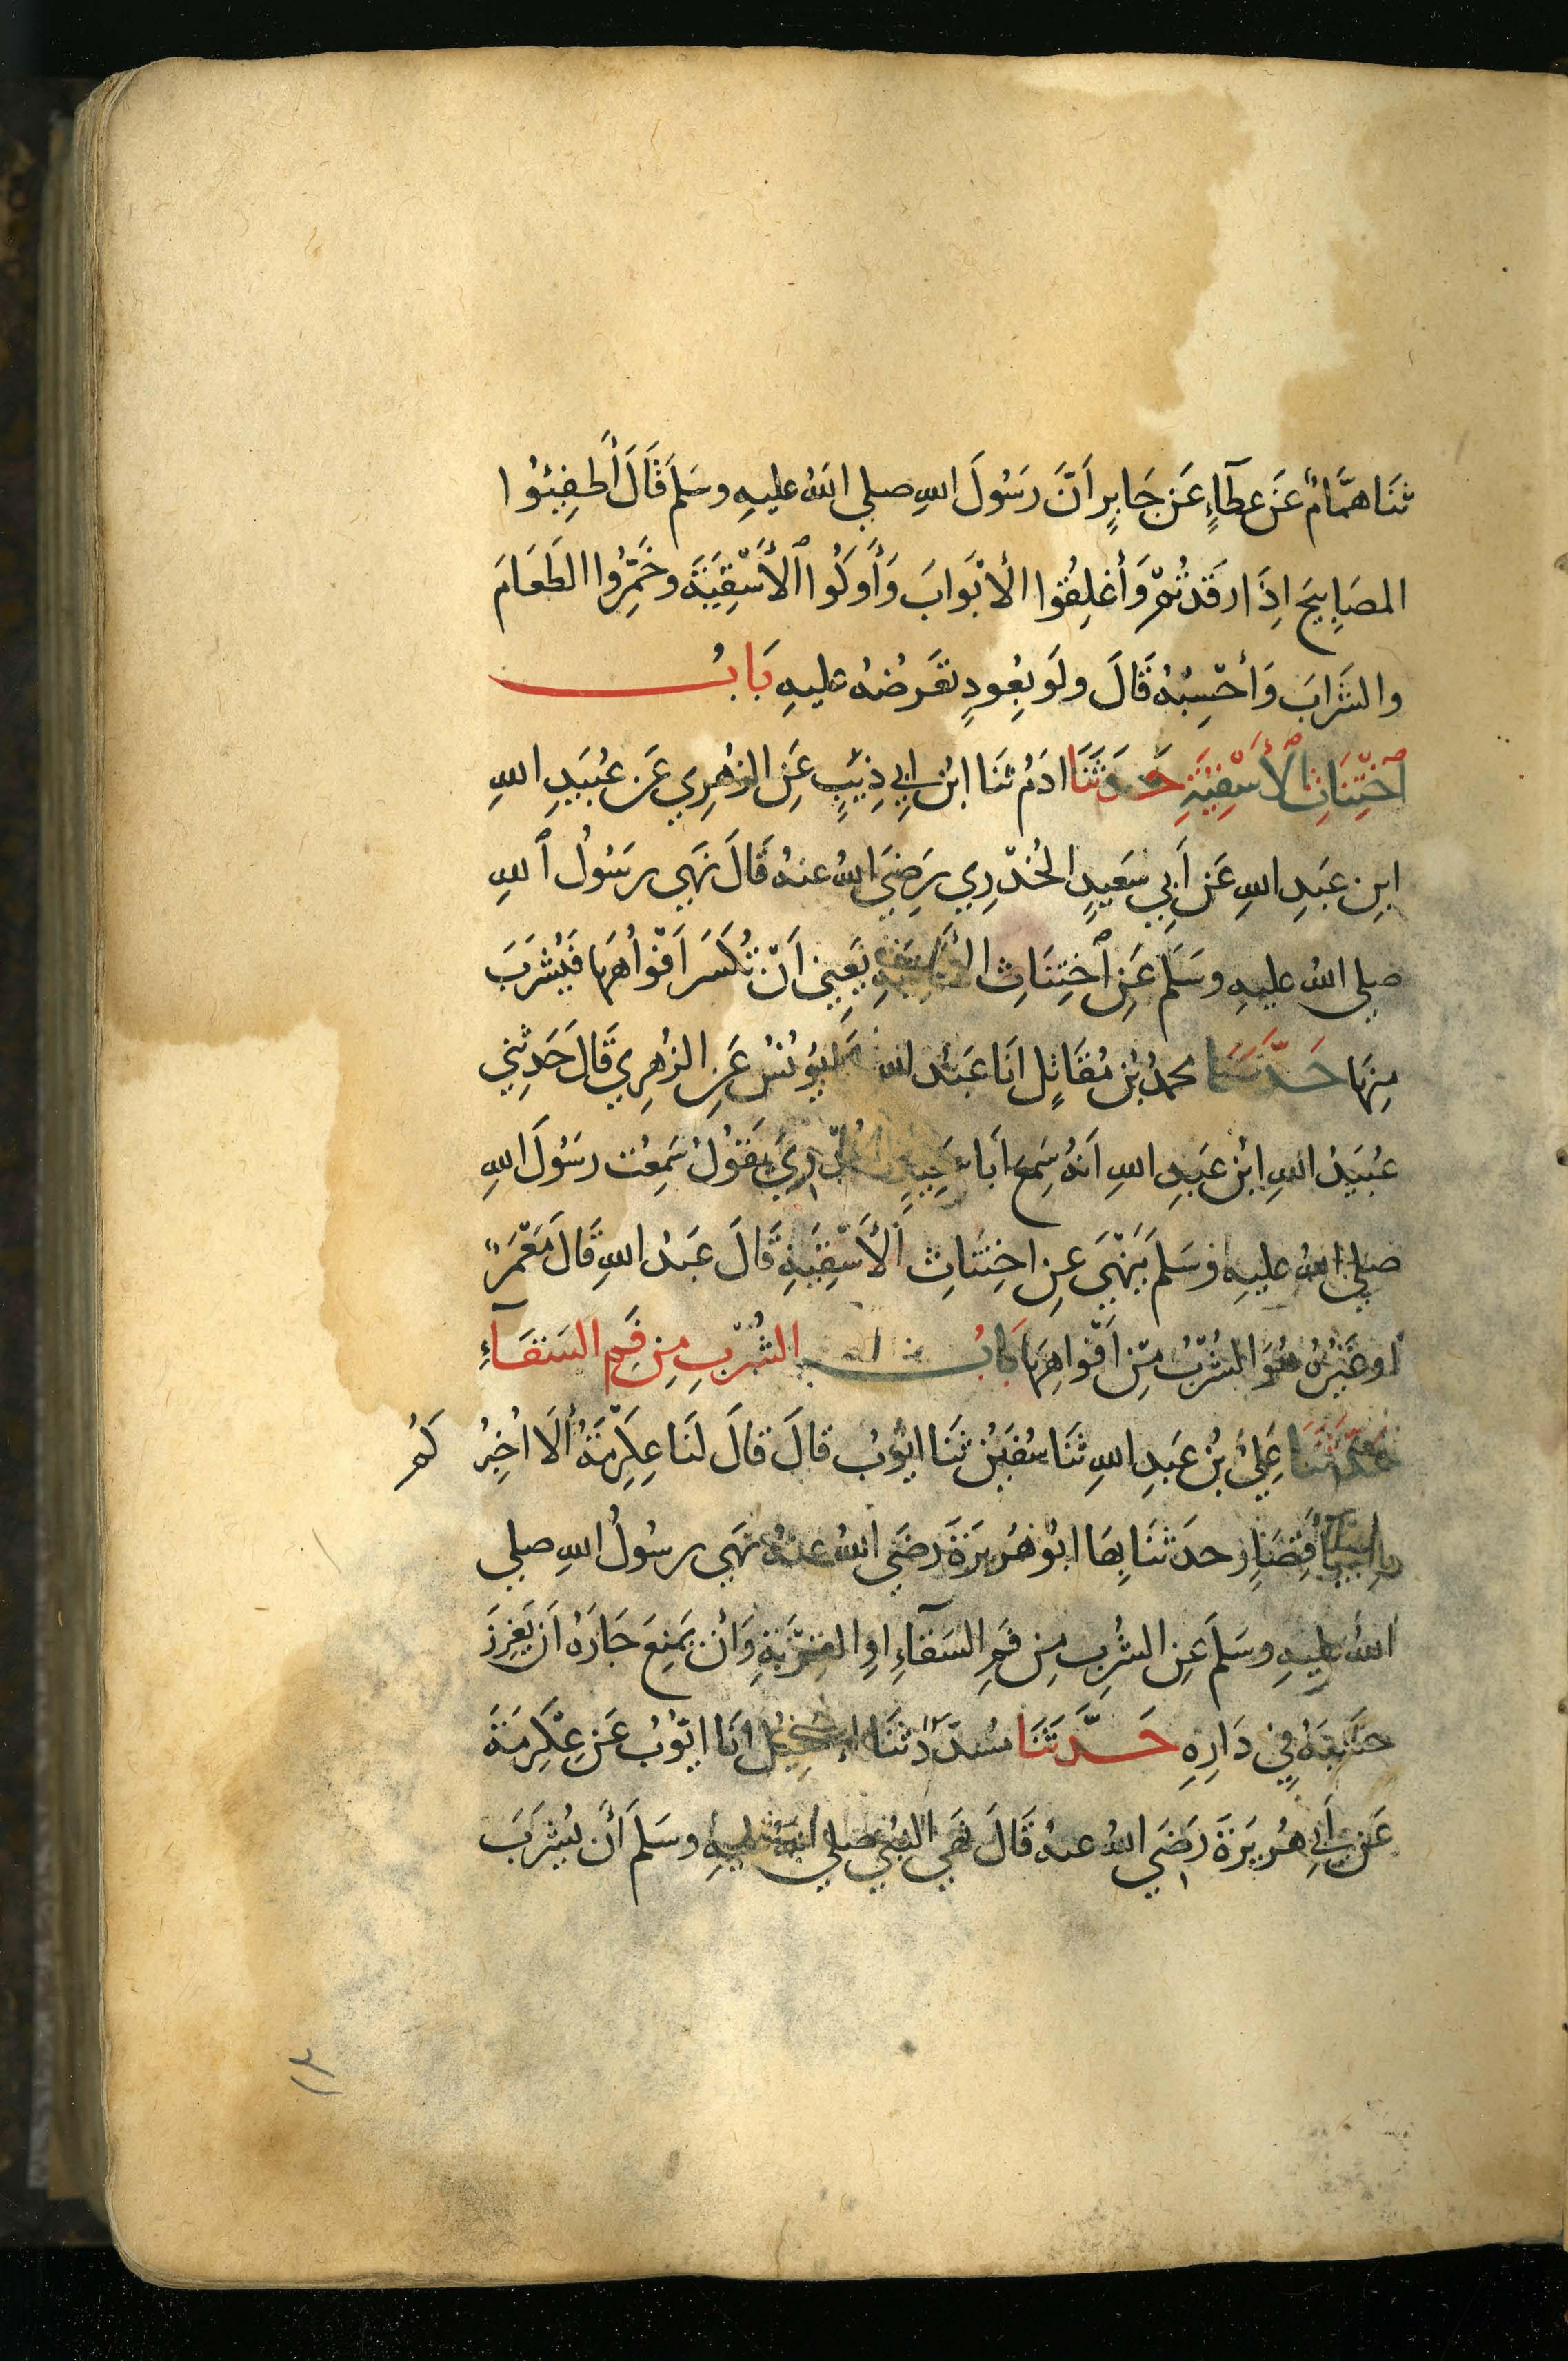 ثَنَا هَمَّامٌ عَن عَطَآءٍ عَن جَابِرٍ اَنَّ رَسُولَ اللهِ صلي اللهُ عليهِ وسَلمَ قَالَ أَطفِئُوا
المصَابِيحَ اِذَا رَقَدتُمْ وَأَغلِقُوا الأبْوَابَ وَأَوكُوا ٱلأَسْقِيَةَ وخَمِّرُوا الطَعَامَ
والشَرَابَ وَأحْسِبُهُ قَالَ ولَو بِعُودٍ تَعَرضُهُ عليهِ بَابُ
ٱختِنَاثِ ٱلأَسْقِيَةِ حَدَثَنَا ادَمُ ثَنَا ابْنُ اَبِي ذِيبٍ عَنِ الزهرِي عَن عُبَيدِ اللهِ
ابنِ عَبدِ اللهِ عَن اَبِي سَعِيدٍ الخُدْرِي رَضِيَ اللهُ عنهُ قَالَ نَهَي رسُولُ ٱللهِ
صلي اللهُ عليهِ وسَلمَ عَنِ ٱختِنَاثِ الأسقيةِ يَعنِي اَنْ تُكسَرَ اَفْوَاهُهَا فَيُشرَبَ
مِنهَا حَدَّثَنَا محمدُ بْنُ مُقَاتِلٍ انَا عَبدُ اللهِ يُونُسُ عَنِ الزهرِي قَالَ حَدثنِي
عُبَيدُ اللهِ ابْنُ عَبدِ اللهِ اَنهُ سَمِعَ اَبَا سَعِيدٍ الخُدْرِيَ يَقُولُ سَمِعتُ رسُولَ اللهِ
صلي اللهُ عليهِ وسَلمَ يَنْهَي عنِ اختِنَاثِ اَلأَسْقِيَةِ قَالَ عَبدُ اللهِ قَالَ مَعْمَرٌ
اَو غَيرُهُ هُوَ الشُرْبُ مِن اَفْوَاهِهَا بَابُ الشُرْبِ مِن فَمِ السَقَآءِ
حَدَّثَنَا عَلِيُ بْنُ عَبدِ اللهِ ثَنَا سُفيَنُ ثَنَا ايُوبُ قَالَ قَالَ لنَا عِكرِمَةُ أَلَا اُخبِرُ كُمْ
بِاَشيَآءَ قِصَارٍ حدَثنَا بِهَا ابُو هُرَيرَةَ رَضيَ اللهُ عنهُ نَهَي رسُولُ اللهِ صلي
اللهُ عليهِ وسَلمَ عنِ الشُربِ مِن فَمِ السَقآءِ اوِ القِرْبَةِ وَأنْ يَمنعَ جَارَهُ اَن يَغرِزَ
خشَبَهُ فِي دَارِهِ حَدَّثَنَا مسَدّدٌ ثَنَا اِسمعِيلُ انَا ايُّوبُ عَن عِكرِمَةَ
عَن اَبِي هُرَيرَةَ رَضيَ اللهُ عنهُ قَالَ نَهَي النبِي صلي اللهُ عليهِ وسَلمَ أَن يُشرَبَ